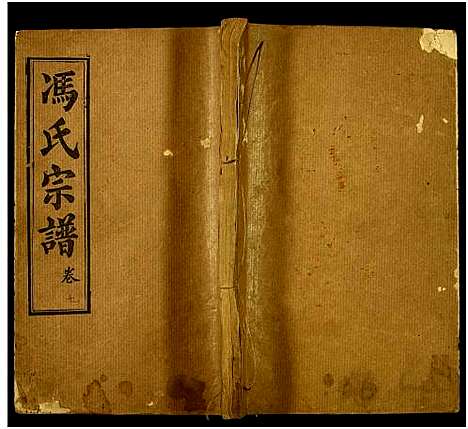 馮氏宗譜 卷七